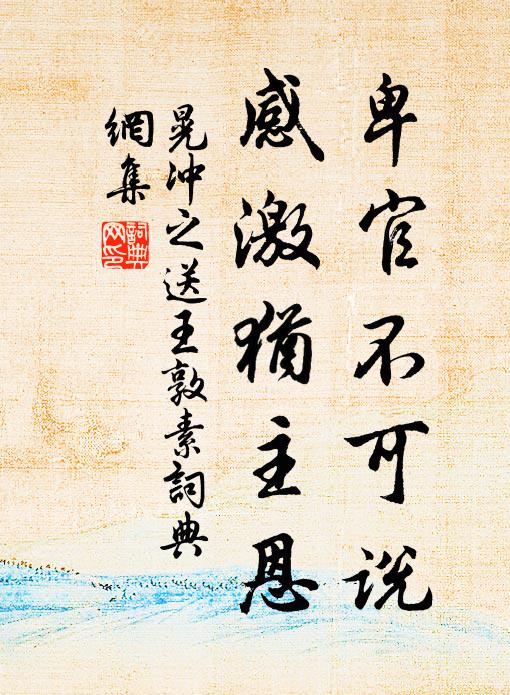 卑官不可说
感激犹主恩
晁冲之送王敦素詞典
網集
詞典
网印